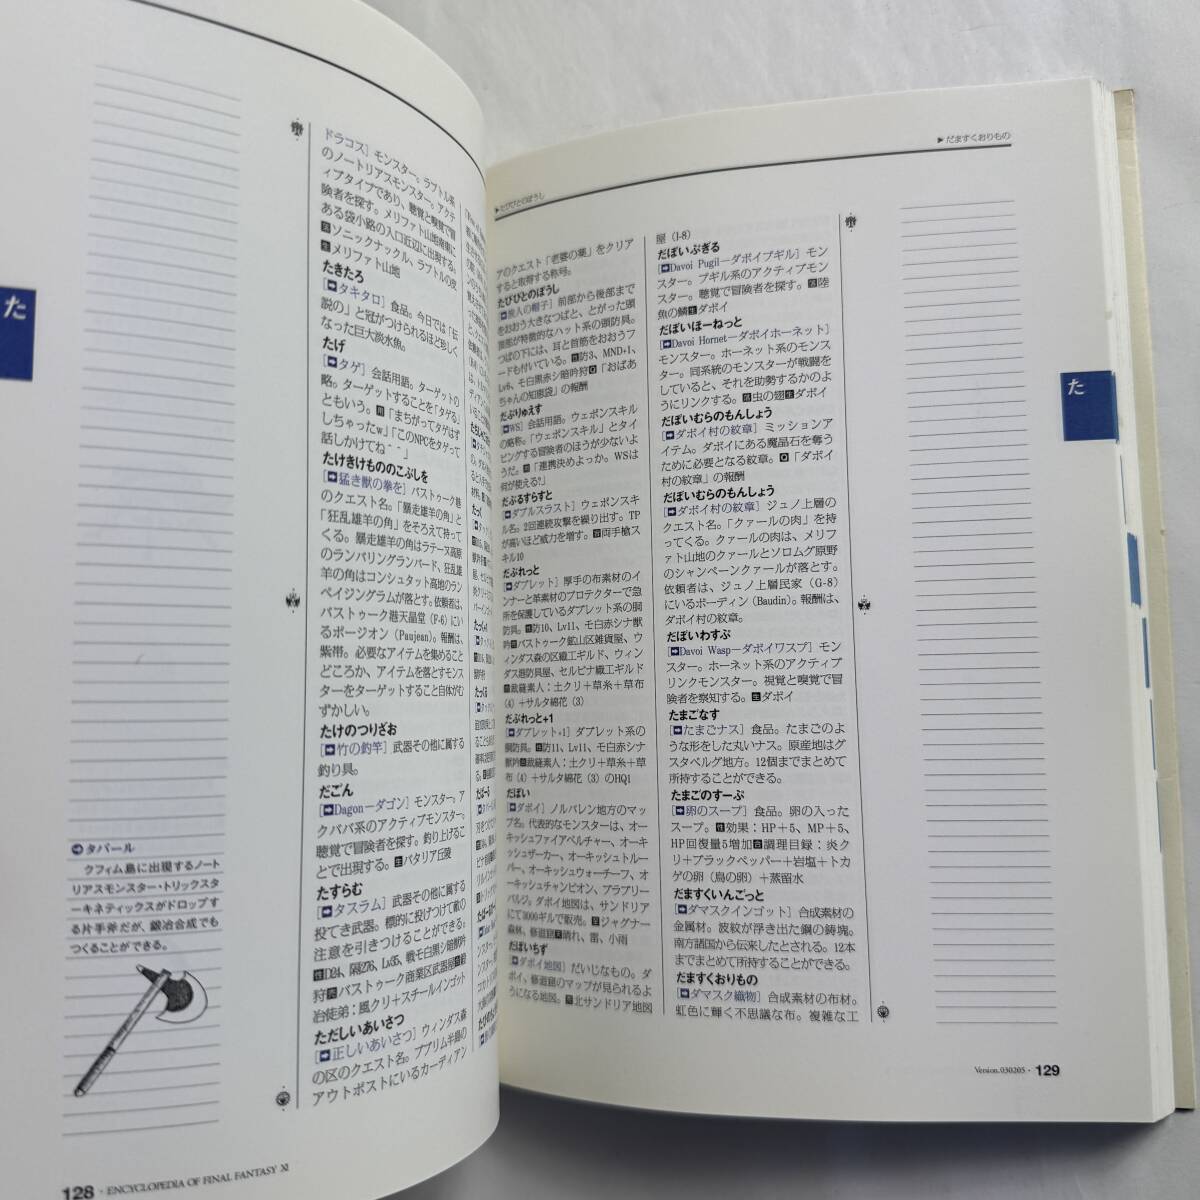 た
ドラコス］モンスター。ラプトル系
のノートリアスモンスター。アクテ
ィブタイプであり、聴覚と嗅覚で冒
険者を探す。メリファト山地南東に
ある袋小路の入口近辺に出現する。
ソニックナックル、ラプトルの皮
メリファト山地
たきたろ
［タキタロ］食品。今日では「伝
説の」と冠がつけられるほど珍しく
なった巨大淡水魚。
たげ
［タゲ］会話用語。ターゲットの
略。ターゲットすることを「タゲる」
ともいう。用「まちがってタゲはず
しちゃったｗ」「このNPCをタゲって
話しかけてね＾＾」
たけきけもののこぶしを
［猛き獣の拳を］バストゥーク港
のクエスト名。「暴走雄羊の角」と
「狂乱雄羊の角」をそろえて持って
くる。暴走雄羊の角はラテーヌ高原
のランパリングランバード、狂乱雄
羊の角はコンシュタット高地のラン
ペイジングラムが落とす。依頼者は、
バストゥーク港天晶堂（F-6）にい
るポージオン（Paujean）。報酬は、
紫帯。必要なアイテムを集めること
どころか、アイテムを落とすモンス
ターをターゲットすること自体がむ
ずかしい。
たけのつりざお
［竹の釣竿］武器その他に属する
釣り具。
だごん
［Dagonーダゴン］モンスター。ア
クババ系のアクティブモンスター。
聴覚で冒険者を探す。釣り上げるこ
とで出現する。生バタリア丘陵
たすらむ
［タスラム］武器その他に属する
投てき武器。標的に投げつけて敵の
注意を引きつけることができる。
性D24、隔276、Lv35、戦モ白黒シ暗獣吟
狩売バストゥーク商業区武器屋
冶徒弟：風クリ+スチールインゴット
ただしいあいさつ
［正しいあいさつ］ウィンダス森
の区のクエスト名。ブブリム半島の
アウトポストにいるガーディアン
タバール
クフィム島に出現するノート
リアスモンスター・トリックスタ
ーキネティックスがドロップす
る片手斧だが、鍛冶合成でも
つくることができる。
128・ENCYCLOPEDIA OF FINAL FANTASY XI
▶たびびとのぼうし
▶だますくおりもの
アのクエスト「老婆の薬」をクリア
すると取得する称号。
たびびとのぼうし
［旅人の帽子］前部から後部まで
をおおう大きなつばと、とがった頭
頂部が特徴的なハット系の頭防具。
つばの下には、耳と首筋をおおうフ
ードも付いている。性防3、MND+1、
Lv6、モ白黒赤シ暗吟狩Q「おばあ
ちゃんの知恵袋」の報酬
だぶりゅえす
［WS］会話用語。ウェポンスキル
の略称。「ウェポンスキル」とタイ
ピングする冒険者のほうが少ないよ
うだ。用「連携決めよっか。WSは
何が使える？」
だぶるすらすと
［ダブルスラスト］ウェポンスキ
ル名。2回連続攻撃を繰り出す。TP
が高いほど威力を増す。習両手槍ス
キル10
だぶれっと
［ダブレット］厚手の布素材のイ
ンナーと革素材のプロテクターで急
所を保護しているダブレット系の胴
防具。性防10、Lv11、モ白赤シナ獣
吟売バストゥーク鉱山区雑貨屋、ウ
ィンダス森の区織工ギルド、ウィン
ダス港防具屋、セルビナ織工ギルド
裁縫素人：土クリ+草糸+草布
（4）+サルタ綿花（3）
だぶれっと+1
［ダブレット+1］ダブレット系の
胴防具。性防11、Lv11、モ白赤シナ
獣吟裁縫素人：土クリ+草糸+草
布（4）+サルタ綿花（3）のHQ1
だぼい
［ダボイ］ノルバレン地方のマッ
プ名。代表的なモンスターは、オー
キッシュファイアベルチャー、オーキ
ッシュザーカー、オーキッシュトルー
パー、オーキッシュウォーチーフ、オ
ーキッシュチャンピオン、アラブリー
バルジ。ダボイ地図は、サンドリア
にて3000ギルで販売。ジャグナー
森林、修道窟天晴れ、雷、小雨
だぼいちず
［ダボイ地図］だいじなもの。ダ
ボイ、修道窟のマップが見られるよ
うになる地図。売北サンドリア地図
屋（I-8）
だぼいぷぎる
［Davoi Pugilーダボイプギル］モン
スター。プギル系のアクティブモン
スター。聴覚で冒険者を探す。落陸
魚の鱗生ダボイ
だぼいほーねっと
［Davoi Hornetーダボイホーネット］
モンスター。ホーネット系のモンス
ター。同系統のモンスターが戦闘を
していると、それを助勢するかのよ
うにリンクする。落虫の翅生ダボイ
だぼいむらのもんしょう
［ダボイ村の紋章］ミッションア
イテム。ダボイにある魔晶石を奪う
ために必要となる紋章。Q「ダボイ
村の紋章」の報酬
だぼいむらのもんしょう
［ダボイ村の紋章］ジュノ上層の
クエスト名。「クァールの肉」を持
ってくる。クァールの肉は、メリフ
ァト山地のクァールとソロムグ原野
のシャンペーンクァールが落とす。
依頼者は、ジュノ上層民家（G-8）
にいるボーディン（Baudin）。報酬は、
ダボイ村の紋章。
だぼいわすぷ
［Davoi Waspーダボイワスプ］モン
スター。ホーネット系のアクティブ
リンクモンスター。視覚と嗅覚で冒
険者を察知する。生ダボイ
たまごなす
［たまごナス］食品。たまごのよ
うな形をした丸いナス。原産地はグ
スタベルグ地方。12個までまとめて
所持することができる。
たまごのすーぷ
［卵のスープ］食品。卵の入った
スープ。性効果：HP＋5、MP＋5、
HP回復量5増加調理目録：炎ク
リ+ブラックペッパー+岩塩+トカ
ゲの卵（鳥の卵）+蒸留水
だますくいんごっと
［ダマスクインゴット］合成素材の
金属材。波紋が浮き出た鋼の鋳塊。
南方諸国から伝来したとされる。12本
までまとめて所持することができる。
だますくおりもの
［ダマスク織物］合成素材の布材。
虹色に輝く不思議な布。複雑な工
た
Version.030205・129